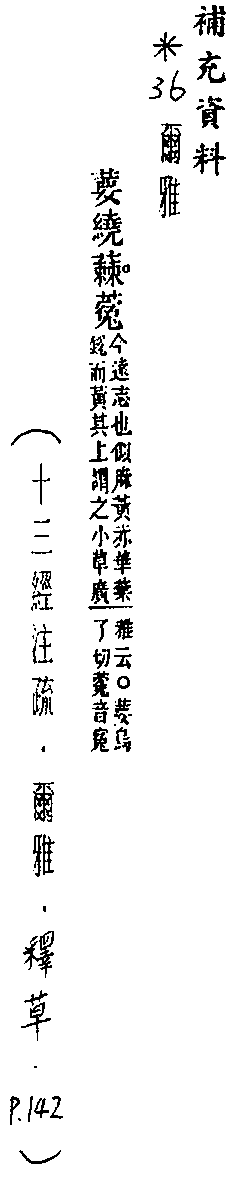 補充資料
*36 爾雅
葽繞蕀。菟 今遠志也似麻黃赤華葉
銳而黃其上謂之小草廣 雅云○葽烏
了切菟音冤
(十三經注疏．爾雅．釋草．P.142)